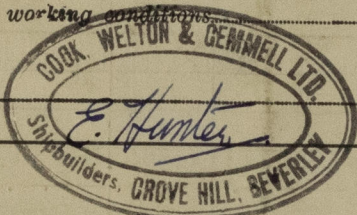 working conditions
COOK, WELTON & GEMMELL LTD.
E. Hunter
Shipbuilders, GROVE HILL, BEVERLEY